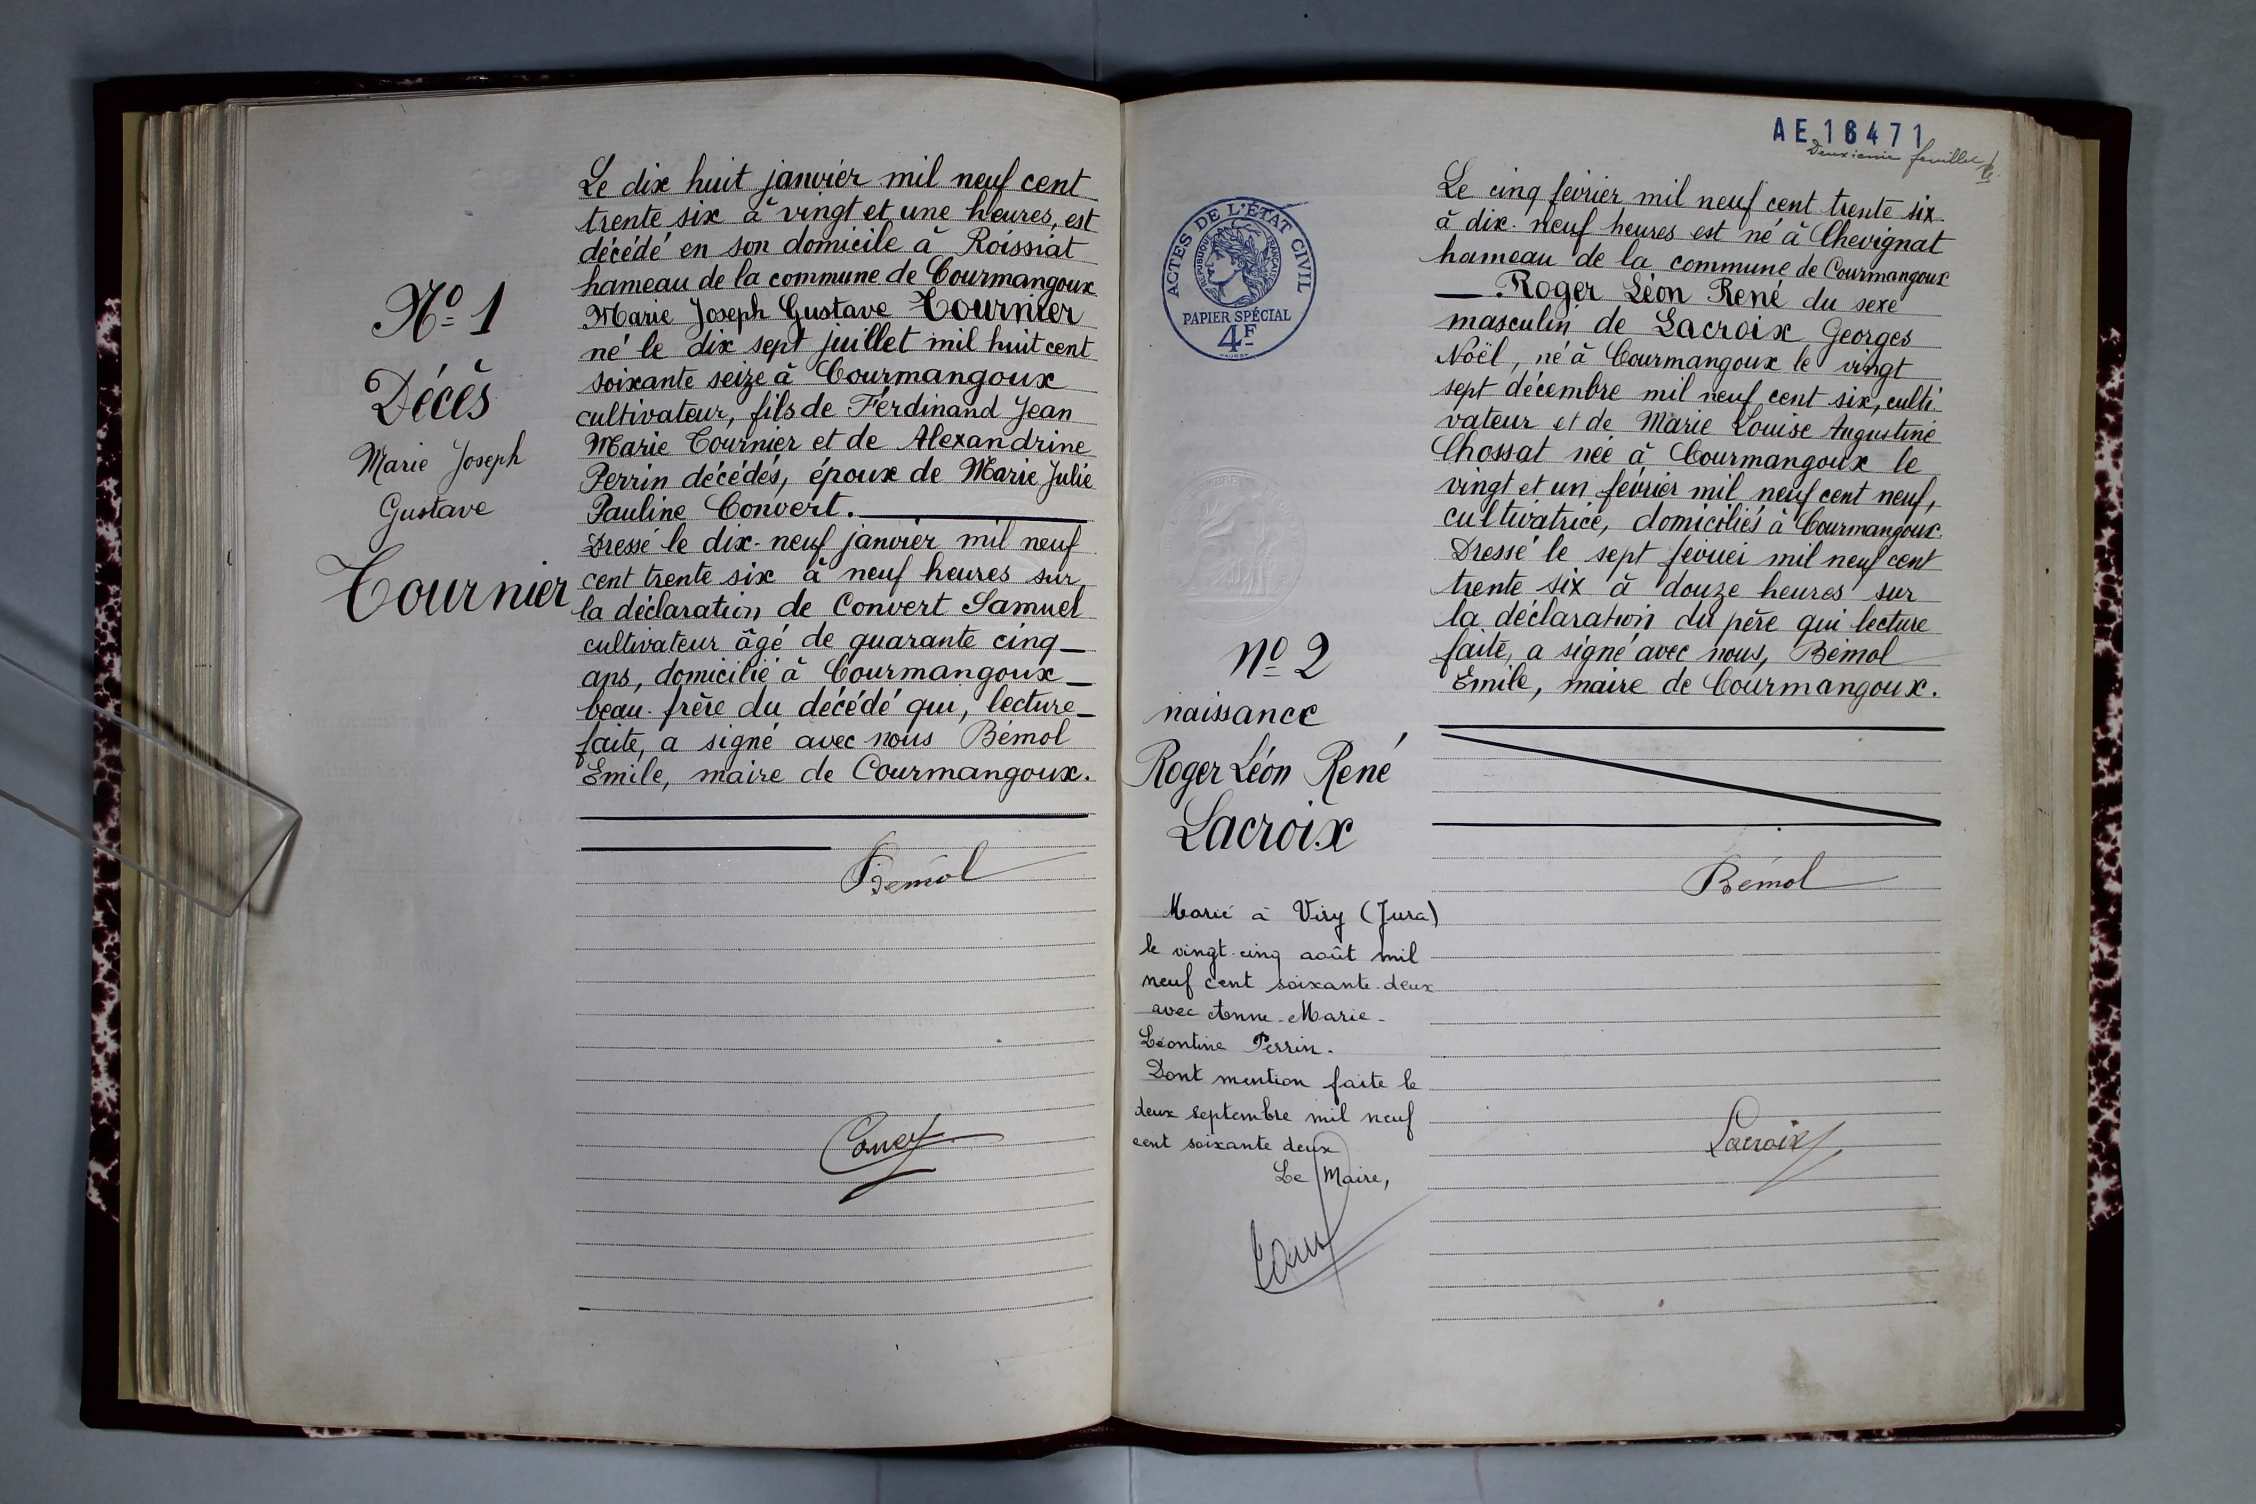 Nº 1
Décès
Marie Joseph
Gustave
Tournier
Le dix huit janvier mil neuf cent
trente six à vingt et une heures, est
décédé en son domicile à Roissiat
hameau de la commune de Courmangoux
Marie Joseph Gustave Tournier
né le dix sept juillet mil huit cent
soixante seize à Courmangoux
cultivateur, fils de Ferdinand Jean
Marie Tournier et de Alexandrine
Perrin décédés, époux de Marie Julie
Pauline Convert.
Dressé le dix-neuf janvier mil neuf
cent trente six à neuf heures sur
la déclaration de Convert Samuel
cultivateur âgé de quarante cinq
ans, domicilié à Courmangoux
beau-frère du décédé qui, lecture
faite, a signé avec nous Bémol
Emile, maire de Courmangoux.
Bémol
AE.16471
Deuxième feuillet
ACTES DE L'ÉTAT CIVIL
RÉPUBLIQUE FRANÇAISE
PAPIER SPÉCIAL
4F
Nº 2
naissance
Roger Léon René
Lacroix
Marié à Viry (Jura)
le vingt-cinq août mil
neuf cent soixante-deux
avec Anne-Marie-
Léontine Perrin.
Dont mention faite le
deux septembre mil neuf
cent soixante deux
Le Maire,
Le cinq février mil neuf cent trente six
à dix-neuf heures est né à Chevignat
hameau de la commune de Courmangoux
Roger Léon René du sexe
masculin de Lacroix Georges
Noël, né à Courmangoux le vingt
sept décembre mil neuf cent six, culti-
vateur et de Marie Louise Augustine
Chossat née à Courmangoux le
vingt et un février mil neuf cent neuf,
cultivatrice, domiciliés à Courmangoux.
Dressé le sept février mil neuf cent
trente six à douze heures sur
la déclaration du père qui lecture
faite, a signé avec nous, Bémol
Emile, maire de Courmangoux.
Bémol
Lacroix